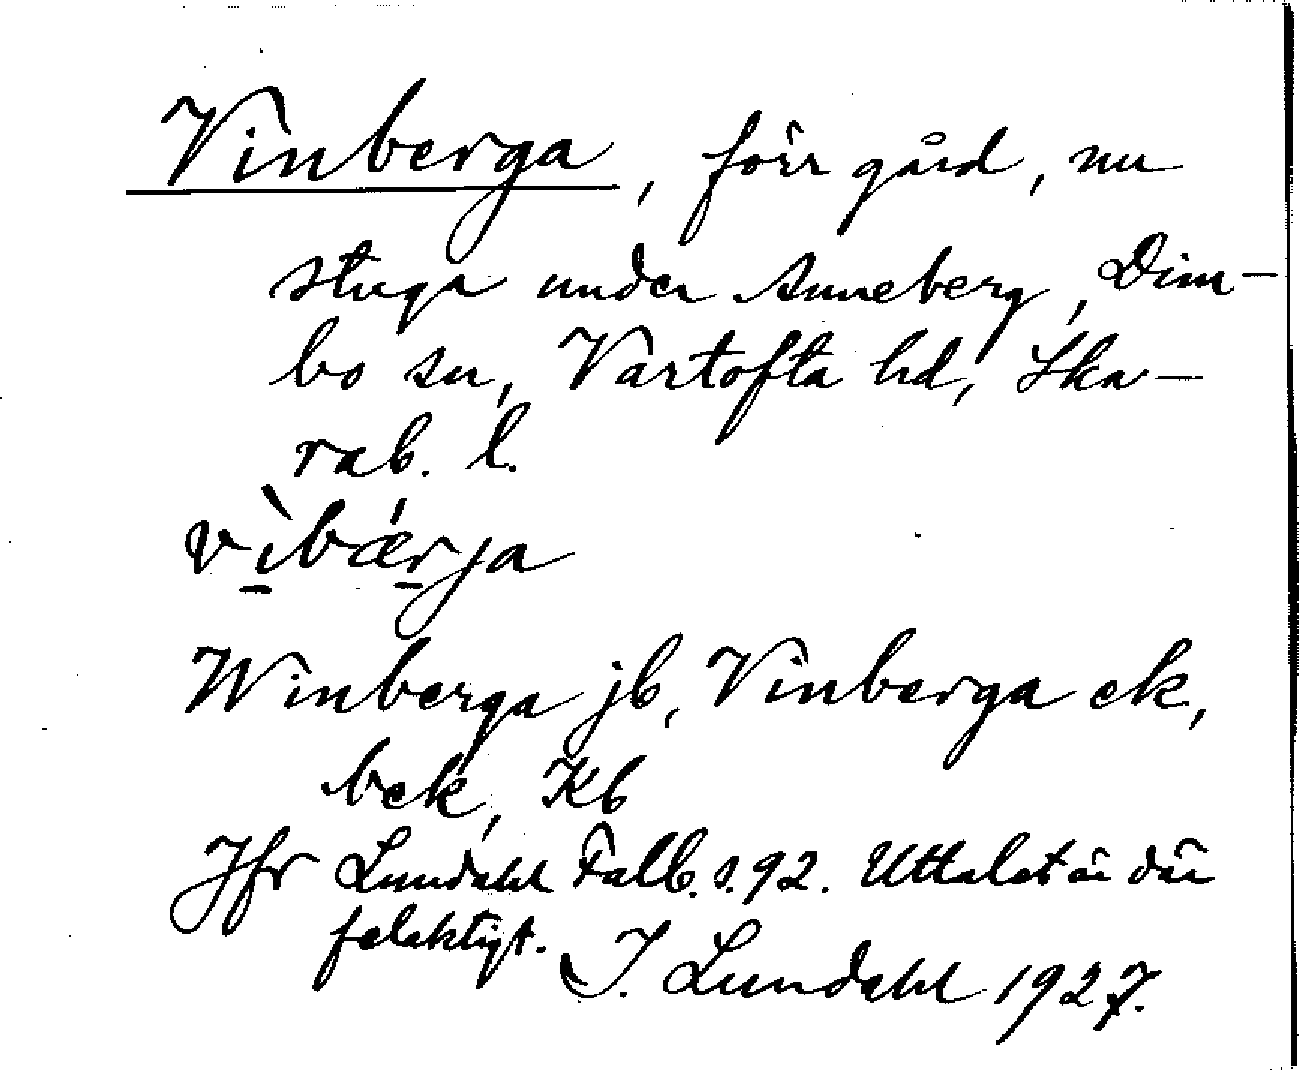 Vinberga, förr gård, nu
stuga under Anneberg, Dim-
bo sn, Vartofta hd, Ska-
rab. l.
vìbǽrja
Winberga jb, Vinberga ek,
bek, Kb
Jfr Lundahl Falb. s. 92. Uttalet är där
felaktigt. I. Lundahl 1927.